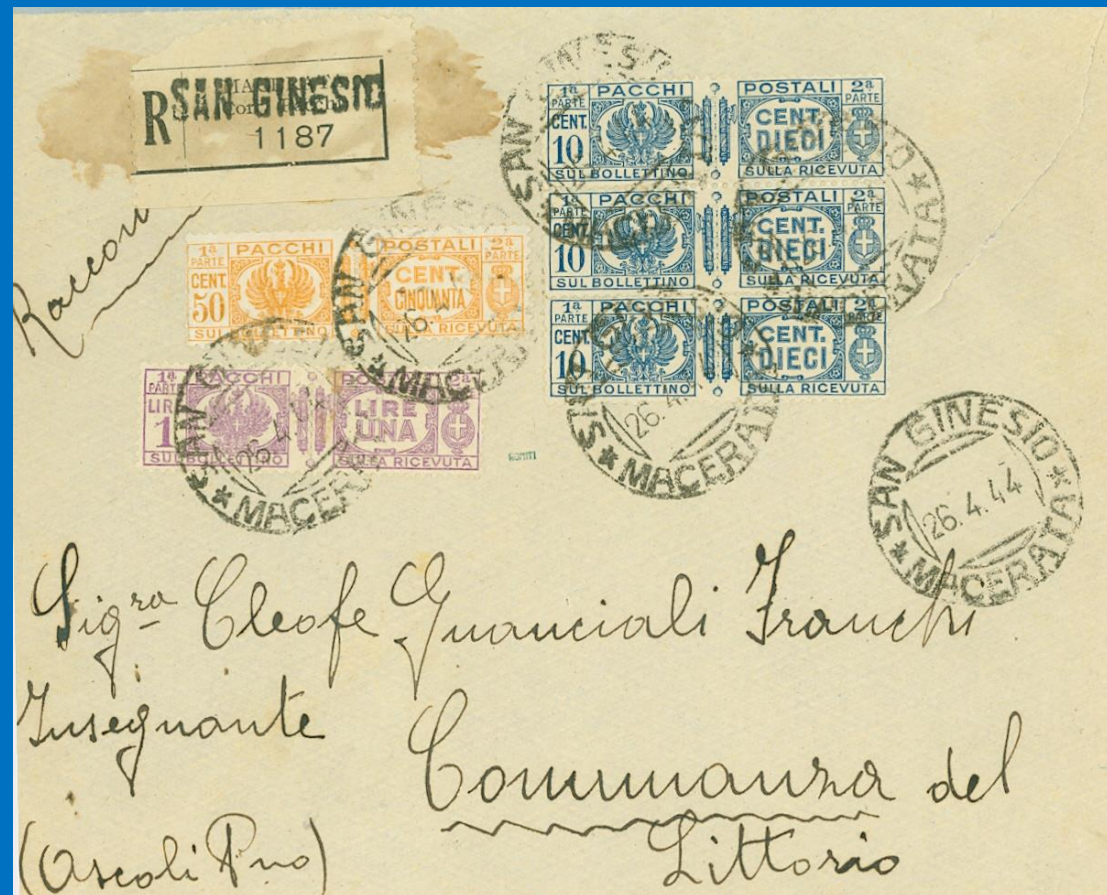 R SAN GINESIO
1187
Raccom
1ª PARTE PACCHI POSTALI 2ª PARTE
CENT. 10 CENT. DIECI
SUL BOLLETTINO SULLA RICEVUTA
1ª PARTE PACCHI POSTALI 2ª PARTE
CENT. 10 CENT. DIECI
SUL BOLLETTINO SULLA RICEVUTA
1ª PARTE PACCHI POSTALI 2ª PARTE
CENT. 10 CENT. DIECI
SUL BOLLETTINO SULLA RICEVUTA
1ª PARTE PACCHI POSTALI 2ª PARTE
CENT. 50 CENT. CINQUANTA
SUL BOLLETTINO SULLA RICEVUTA
1ª PARTE PACCHI POSTALI 2ª
LIRE 1 LIRE UNA
SUL BOLLETTINO SULLA RICEVUTA
SAN GINESIO
26.4.44
* MACERATA *
Sigra Cleofe Guanciali Franchi
Insegnante
Communanza del
Littorio
(Ascoli Pno)